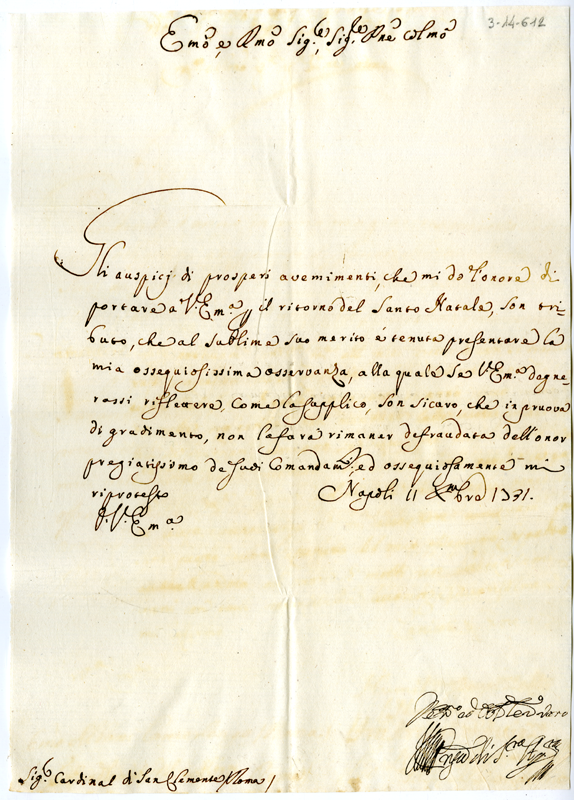 3-14-612
Emo e Rmo Sig.e Sig.re Pne Colmo
Gli auspicj di prosperi avvenimenti, che mi do l'onore di
portare a V. Em.a p il ritorno del Santo Natale, son tri-
buto, che al sublime suo merito é tenuta presentare la
mia ossequiosissima osservanza, alla quale se V. Em.a degne-
rassi riflettere, come la supplico, son sicaro, che in pruova
di gradimento, non lasará rimaner defraudata dell'onor
pregiatissimo de suoi Comandam.ti ed ossequiosamente mi
riprotesto
Napoli 11 Xmbre 1731.
D. V. Em.a
Sig.r Cardinal di San Clemente / Roma /